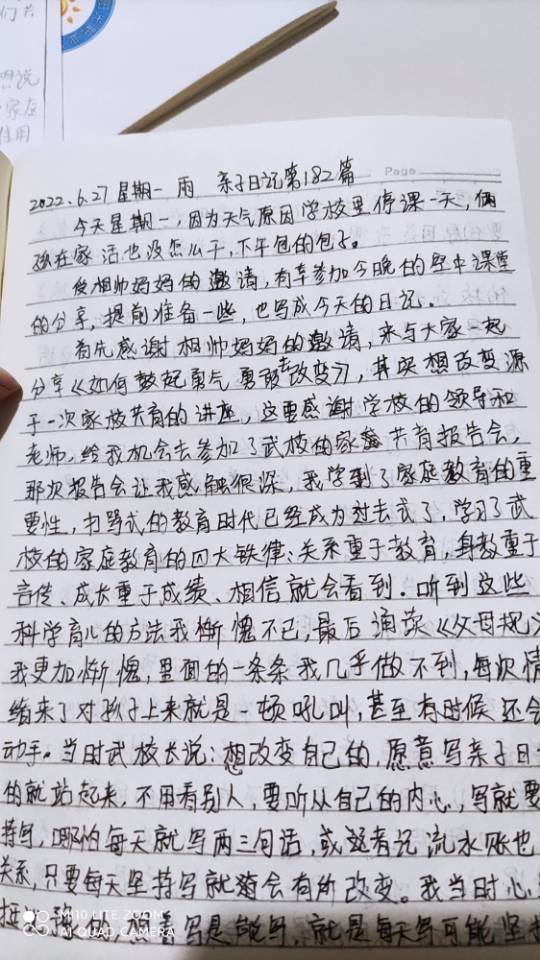 们共
想说
家庭
佳用
Page
2022.6.27 星期一 雨 亲子日记第182篇
今天星期一,因为天气原因学校里停课一天,俩
孩在家活也没怎么干,下午包的包子。
受相帅妈妈的邀请,有幸参加今晚的空中课堂
的分享,提前准备一些,也写成今天的日记.
首先感谢相帅妈妈的邀请,来与大家一起
分享《如何鼓起勇气 勇敢去改变》,其实想改变源
于一次家校共育的讲座,这要感谢学校的领导和
老师,给我机会去参加了武校的家庭共育报告会,
那次报告会让我感触很深,我学到了家庭教育的重
要性,打骂式的教育时代已经成为过去式了,学习了武
校的家庭教育的四大铁律:关系重于教育,身教重于
言传、成长重于成绩、相信就会看到.听到这些
科学育儿的方法我惭愧不已,最后诵读《父母规》
我更加惭愧,里面的一条条我几乎做不到,每次情
绪来了对孩子上来就是一顿吼叫,甚至有时候还会
动手。当时武校长说:想改变自己的,愿意写亲子日
的就站起来,不用看别人,要听从自己的内心,写就要
持写,哪怕每天就写两三句话,或者记流水账也
关系,只要每天坚持写就会有所改变。我当时心
写是能写,就是每天写可能坚持
MI 10 LITE ZOOM
AI QUAD CAMERA